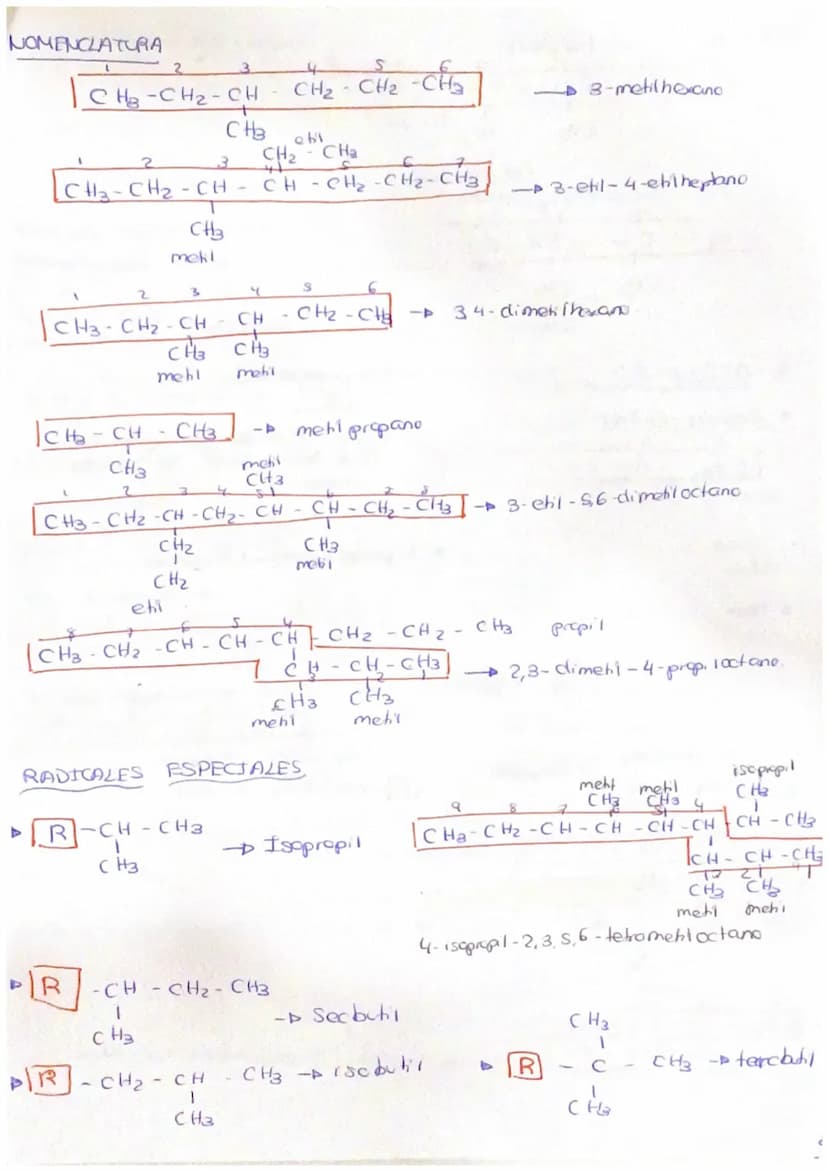 NOMENCLATURA
1 2 3 4 5 6
CH3 - CH2 - CH - CH2 - CH2 - CH3 → 3-metilhexano
CH3
etil
CH2 - CH3
1 2 3 4 5 6 7
CH3 - CH2 - CH - CH - CH2 - CH2 - CH3 → 3-etil-4-etilheptano
CH3
metil
1 2 3 4 5 6
CH3 - CH2 - CH - CH - CH2 - CH3 → 3 4-dimetilhexano
CH3 CH3
metil metil
CH3 - CH - CH3 → metilpropano
CH3
metil
CH3
1 2 3 4 5 6 7 8
CH3 - CH2 - CH - CH2 - CH - CH - CH2 - CH3 → 3-etil-5,6-dimetiloctano
CH2 CH3
CH2 metil
etil
8 7 6 5 4
CH3 - CH2 - CH - CH - CH - CH2 - CH2 - CH3 propil
CH - CH - CH3 → 2,3-dimetil-4-propiloctano.
3 2 1
CH3 CH3
metil metil
RADICALES ESPECIALES
R - CH - CH3 → Isopropil
CH3
isopropil
metil metil CH3
CH3 CH3
9 8 7 6 5 4
CH3 - CH2 - CH - CH - CH - CH CH - CH3
CH - CH - CH3
3 2 1
CH3 CH3
metil metil
4-isopropil-2,3,5,6-tetrametiloctano
R - CH - CH2 - CH3 → Secbutil
CH3
R - CH2 - CH - CH3 → isobutil
CH3
CH3
R - C - CH3 → tercbutil
CH3